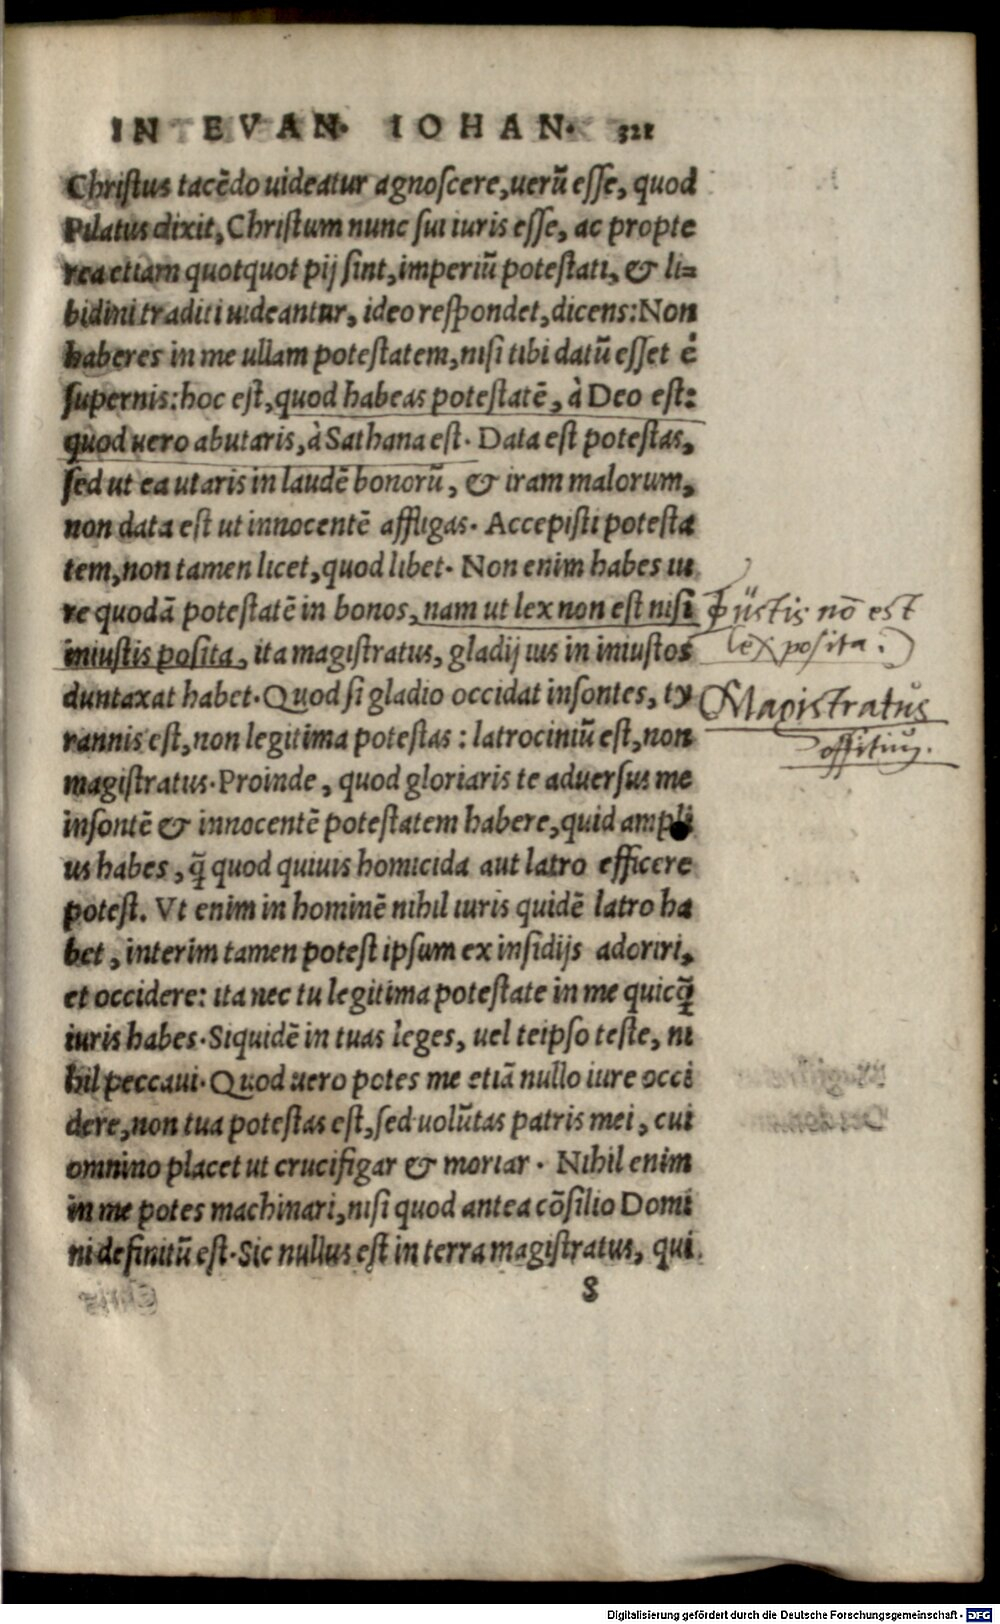 IN EVAN. IOHAN. 321
Christus tacēdo uideatur agnoscere, uerū esse, quod
Pilatus dixit, Christum nunc sui iuris esse, ac propte
rea etiam quotquot pij sint, imperiū potestati, & li=
bidini traditi uideantur, ideo respondet, dicens: Non
haberes in me ullam potestatem, nisi tibi datū esset è
supernis: hoc est, quod habeas potestatē, à Deo est:
quod uero abutaris, à Sathana est. Data est potestas,
sed ut ea utaris in laudē bonorū, & iram malorum,
non data est ut innocentē affligas. Accepisti potesta
tem, non tamen licet, quod libet. Non enim habes iu
re quodā potestatē in bonos, nam ut lex non est nisi
iniustis posita, ita magistratus, gladij ius in iniustos
duntaxat habet. Quod si gladio occidat insontes, ty
rannis est, non legitima potestas: latrociniū est, non
magistratus. Proinde, quod gloriaris te aduersus me
insontē & innocentē potestatem habere, quid ampli
us habes, q̃ quod quiuis homicida aut latro efficere
potest. Vt enim in hominē nihil iuris quidē latro ha
bet, interim tamen potest ipsum ex insidijs adoriri,
et occidere: ita nec tu legitima potestate in me quicq̃
iuris habes. Siquidē in tuas leges, uel teipso teste, ni
hil peccaui. Quod uero potes me etiā nullo iure occi
dere, non tua potestas est, sed uolūtas patris mei, cui
omnino placet ut crucifigar & moriar. Nihil enim
in me potes machinari, nisi quod antea cōsilio Domi
ni definitū est. Sic nullus est in terra magistratus, qui
S
iustis nō est
lex posita.
Magistratus
offitiu.
Digitalisierung gefördert durch die Deutsche Forschungsgemeinschaft - DFG